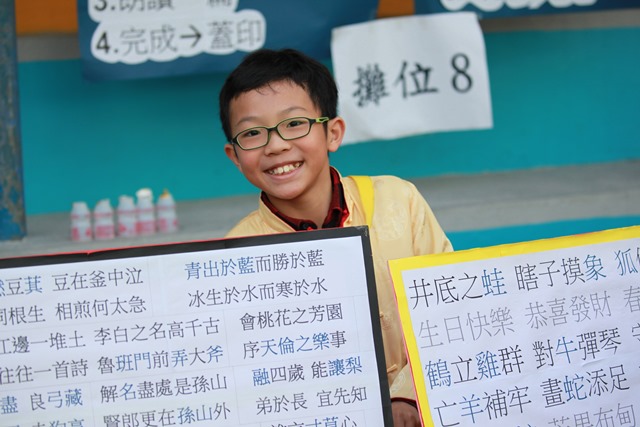 3.朗讀 篇
4.完成→蓋印
攤位 8
豆萁 豆在釜中泣
同根生 相煎何太急
江邊一堆土 李白之名高千古
往往一首詩 魯班門前弄大斧
盡 良弓藏 解名盡處是孫山
賢郎更在孫山外
青出於藍而勝於藍
冰生於水而寒於水
會桃花之芳園
序天倫之樂事
融四歲 能讓梨
弟於長 宜先知
井底之蛙 瞎子摸象 狐
生日快樂 恭喜發財 春
鶴立雞群 對牛彈琴
亡羊補牢 畫蛇添足